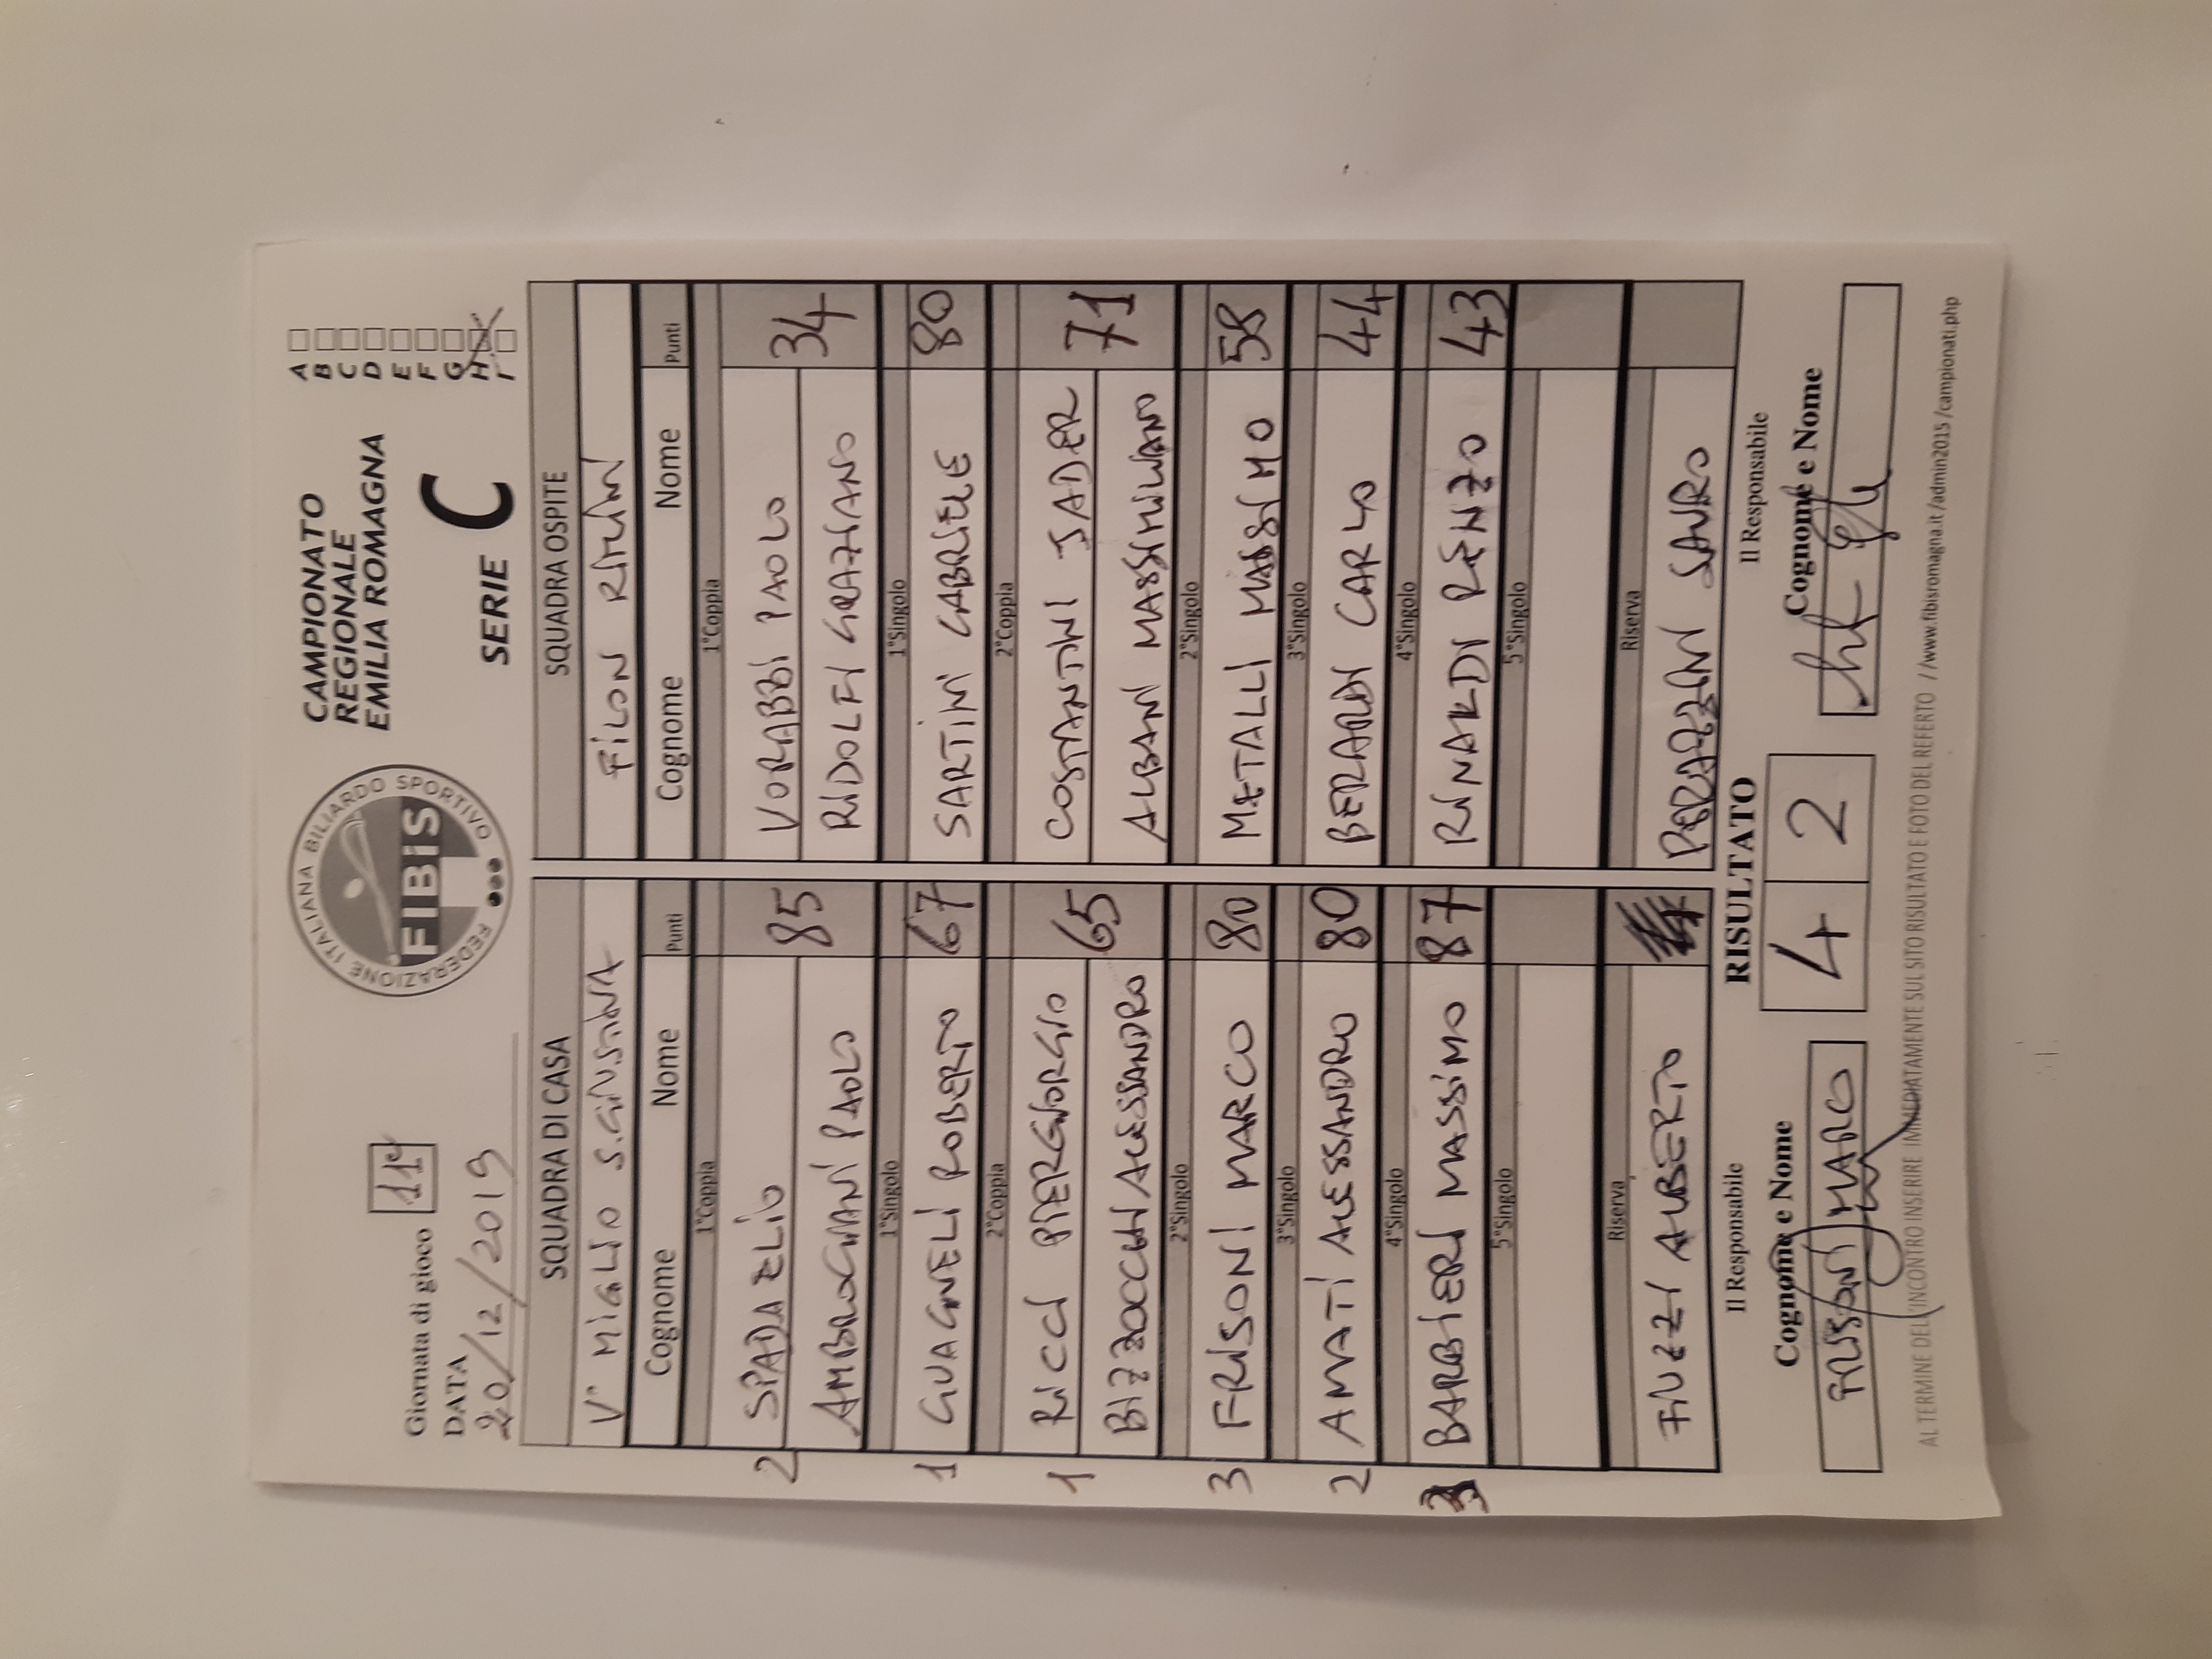 Giornata di gioco 11ª
DATA
20/12/2019
FEDERAZIONE ITALIANA BILIARDO SPORTIVO
FIBiS
CAMPIONATO
REGIONALE
EMILIA ROMAGNA
SERIE C
A
B
C
D
E
F
G
H
I
SQUADRA DI CASA SQUADRA OSPITE
V° MIGLIO S.GIUSTINA FILON RIMINI
Cognome Nome Punti Cognome Nome Punti
1°Coppia 1°Coppia
2 SPADA ELIO 85 VORABBI PAOLO 34
AMBROGIANI PAOLO RIDOLFI GRAZIANO
1°Singolo 1°Singolo
1 GUAGNELI ROBERTO 67 SARTINI GABRIELE 80
2°Coppia 2°Coppia
1 RICCI PIERGIORGIO 65 COSTANTINI JADER 71
BIZZOCCHI ALESSANDRO ALBANI MASSIMILIANO
2°Singolo 2°Singolo
3 FRISONI MARCO 80 METALLI MASSIMO 58
3°Singolo 3°Singolo
2 AMATI ALESSANDRO 80 BERARDI CARLO 44
4°Singolo 4°Singolo
3 BARBIERI MASSIMO 87 RINALDI RENZO 43
5°Singolo 5°Singolo
Riserva Riserva
FIUZZI ALBERTO PERAZZINI SAURO
Il Responsabile RISULTATO Il Responsabile
Cognome e Nome 4 2 Cognome e Nome
FRISONI MARCO
AL TERMINE DELL'INCONTRO INSERIRE IMMEDIATAMENTE SUL SITO RISULTATO E FOTO DEL REFERTO /www.fibisromagna.it /admin2015 /campionati.php